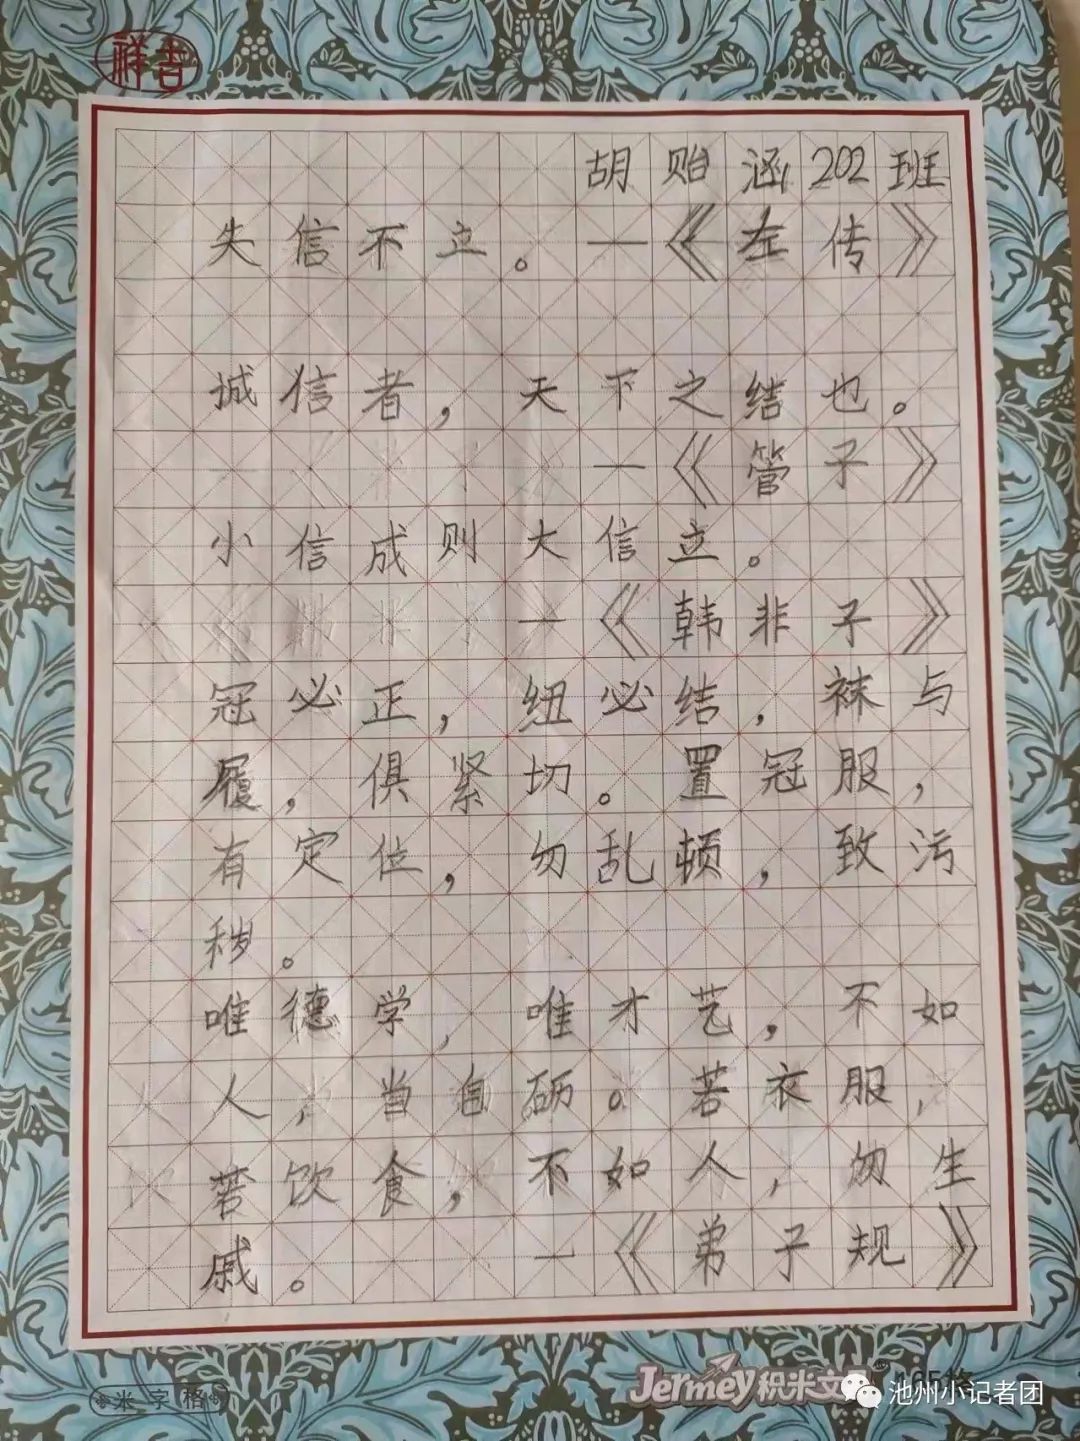 祥吉
胡贻涵202班
失信不立。—《左传》
诚信者，天下之结也。
—《管子》
小信成则大信立。
—《韩非子》
冠必正，纽必结，袜与
履，俱紧切。置冠服，
有定位，勿乱顿，致污
秽。
唯德学，唯才艺，不如
人，当自砺。若衣服，
若饮食，不如人，勿生
戚。—《弟子规》
米字格
Jermey积米文
池州小记者团